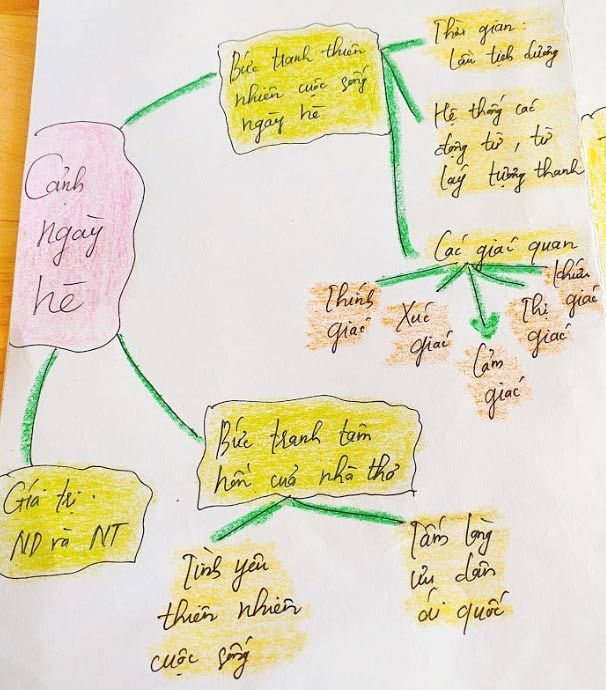 Cảnh
ngày
hè
Bức tranh thiên
nhiên cuộc sống
ngày hè
Thời gian:
Lầu tịch dương
Hệ thống các
động từ, từ
láy tượng thanh
Các giác quan
Thính
giác
Xúc
giác
Cảm
giác
Thị giác
Khứu
giác
Bức tranh tâm
hồn của nhà thơ
Tình yêu
thiên nhiên
cuộc sống
Tấm lòng
ưu dân
ái quốc
Giá trị.
ND và NT